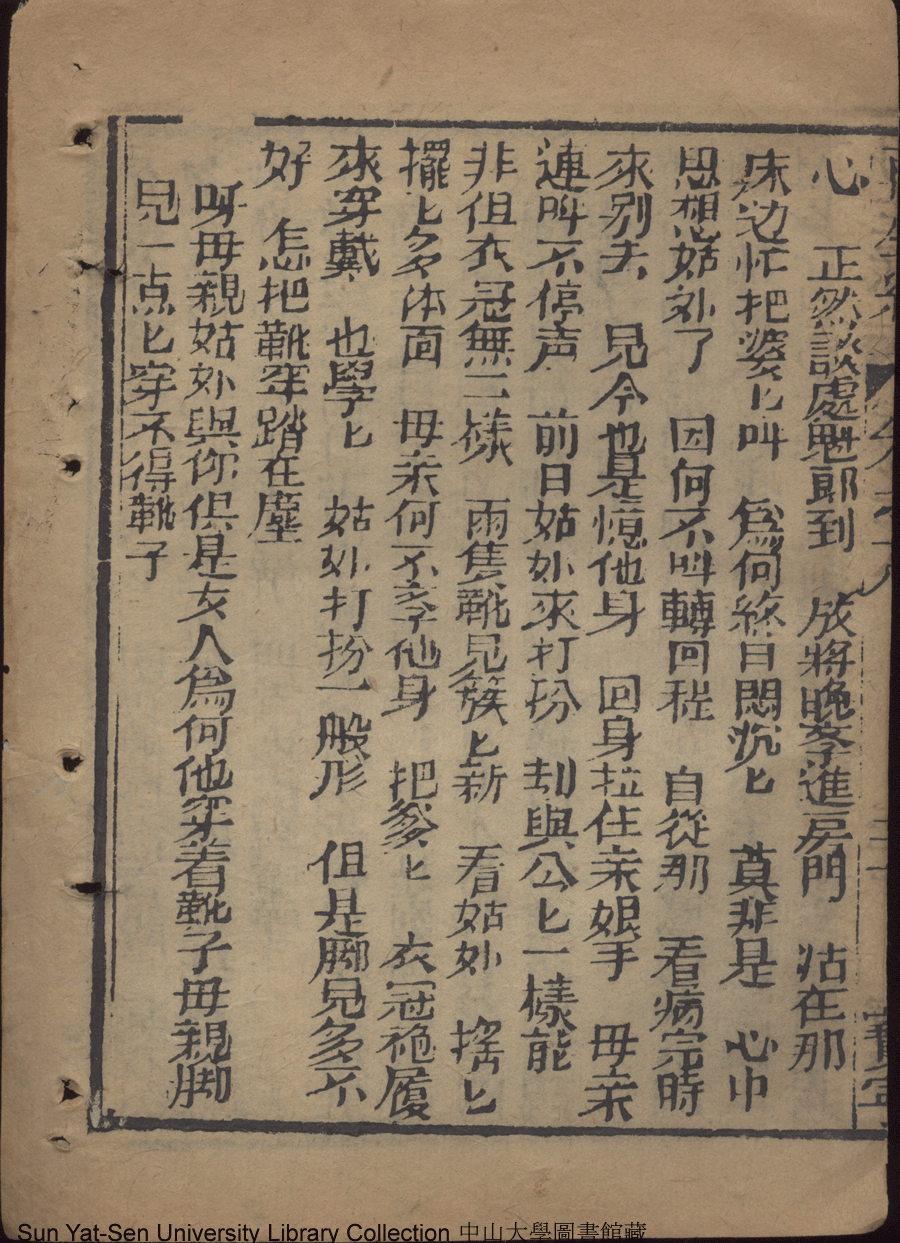 心　正然談處魁郎到　放將晚李進房門　站在那
床边忙把婆匕叫　爲何終日悶沉匕　莫非是　心巾
思想姑妳了　因何不呌轉回程　自從那　看病完時
來别去　見今也是憶他身　回身拉住亲娘手　毋亲
連呌不停声　前日姑妳來打扮　刦與公匕一樣能
非但衣冠無二樣　兩隻靴見簇匕新　看姑妳　摇匕
擺匕多体面　毋亲何不李他身　把爹匕　衣冠袍履
來穿戴　也學匕　姑妳打扮一般形　但是脚見多不
好　怎把靴牢踏在塵
呀毋親姑妳與你俱是女人爲何他穿着靴子毋親脚
見一点匕穿不得靴子
Sun Yat-Sen University Library Collection 中山大學圖書館藏